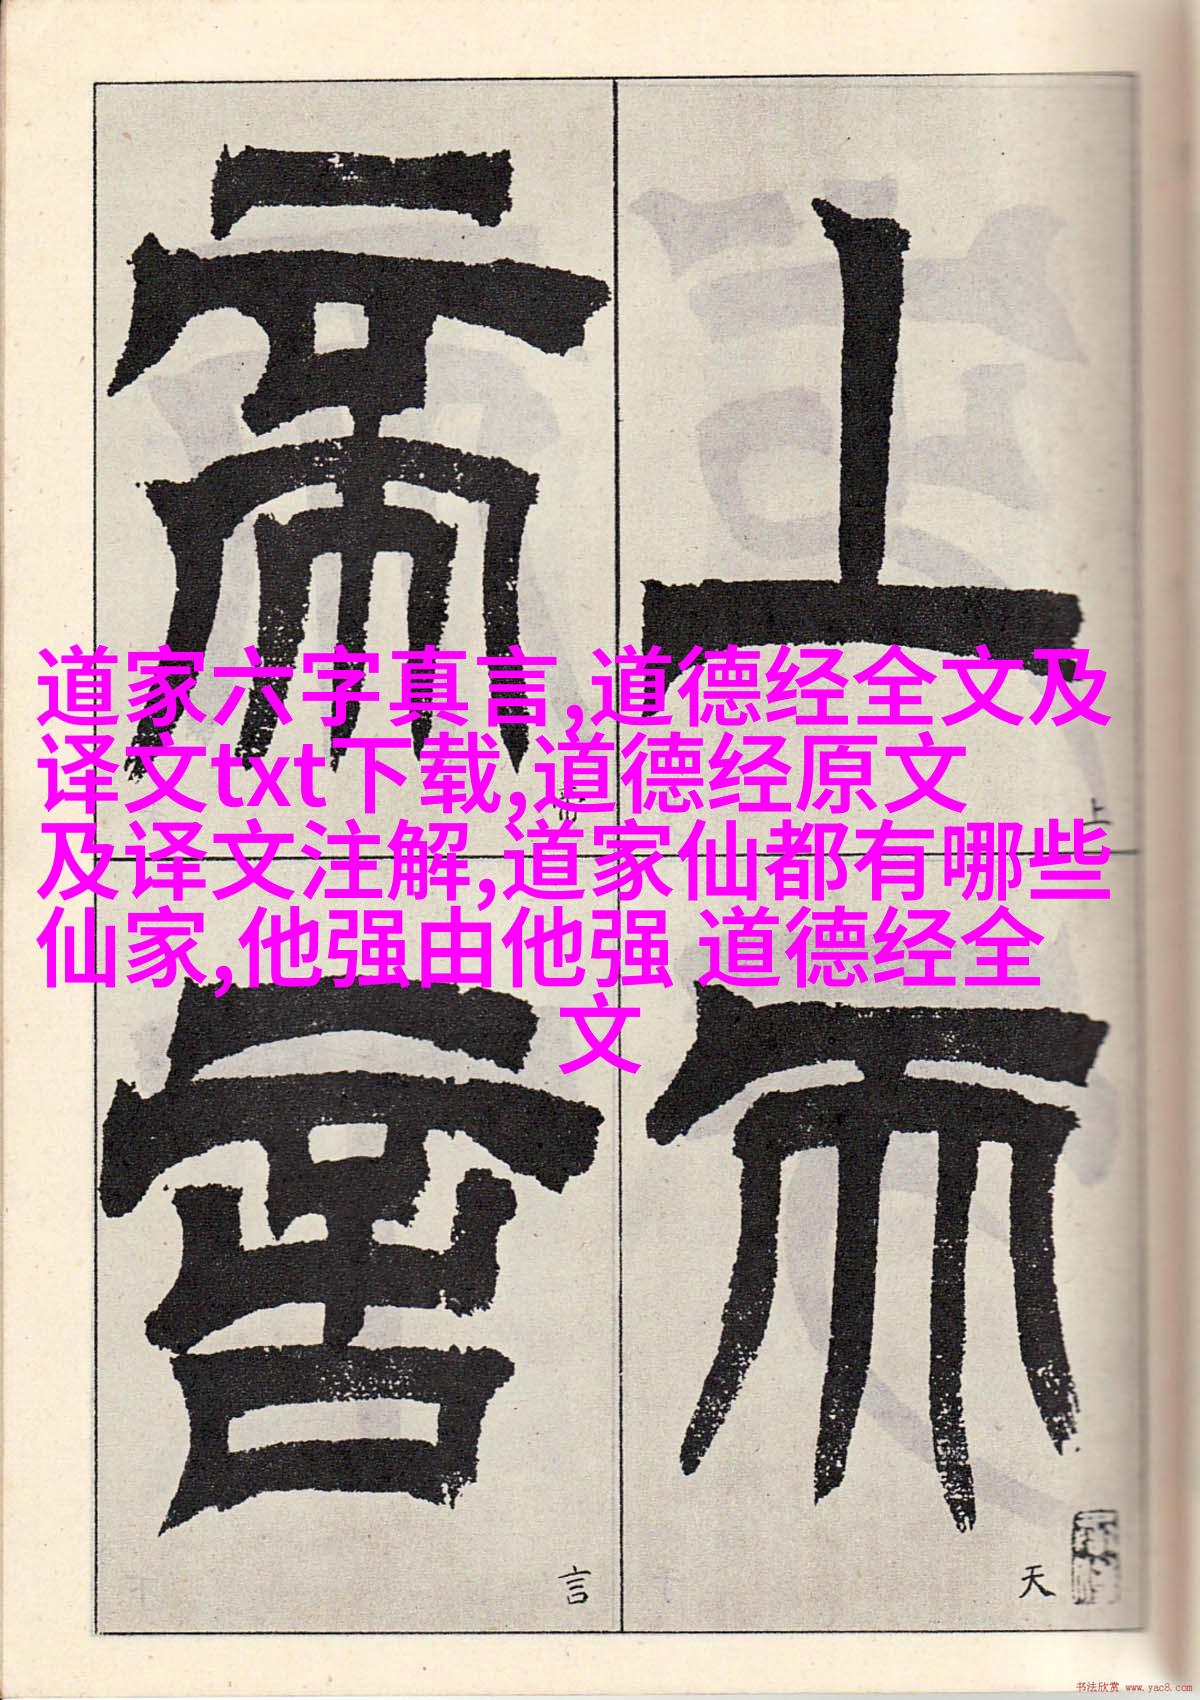 上
天
帝
言
道家六字真言,道德经全文及
译文txt下载,道德经原文
及译文注解,道家仙都有哪些
仙家,他强由他强 道德经全
文
书法欣赏 www.yac8.com